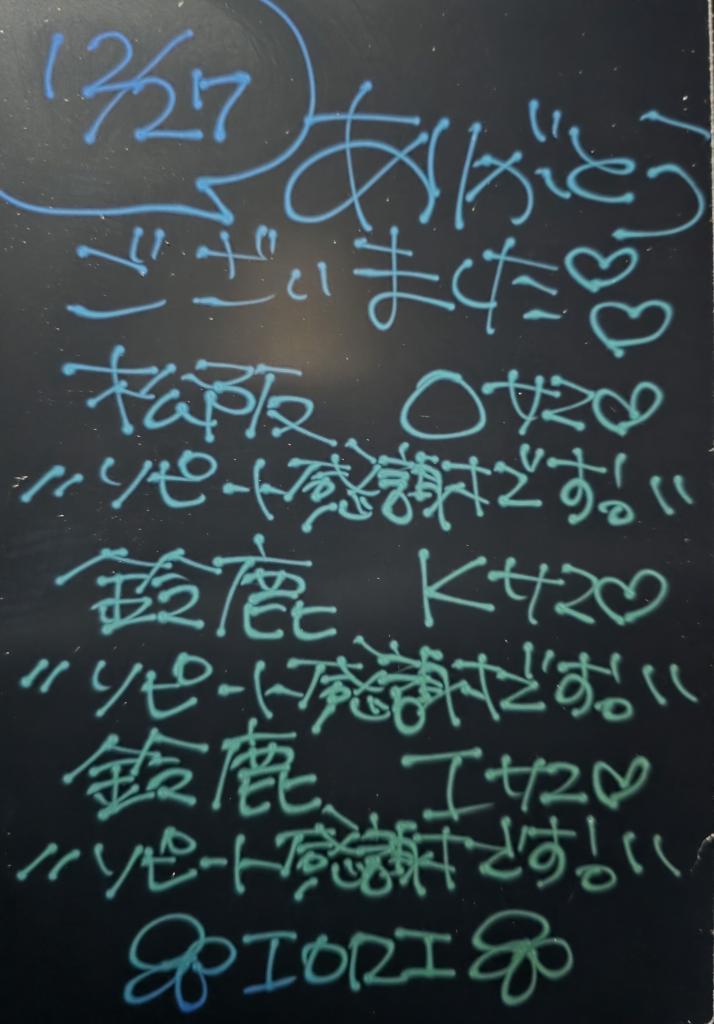 12/27
ありがとう
ございました♡♡
松阪 Oサン♡
〃リピート感謝です!。〃
鈴鹿 Kサン♡
〃リピート感謝です!。〃
鈴鹿 Iサン♡
〃リピート感謝です!。〃
IORI